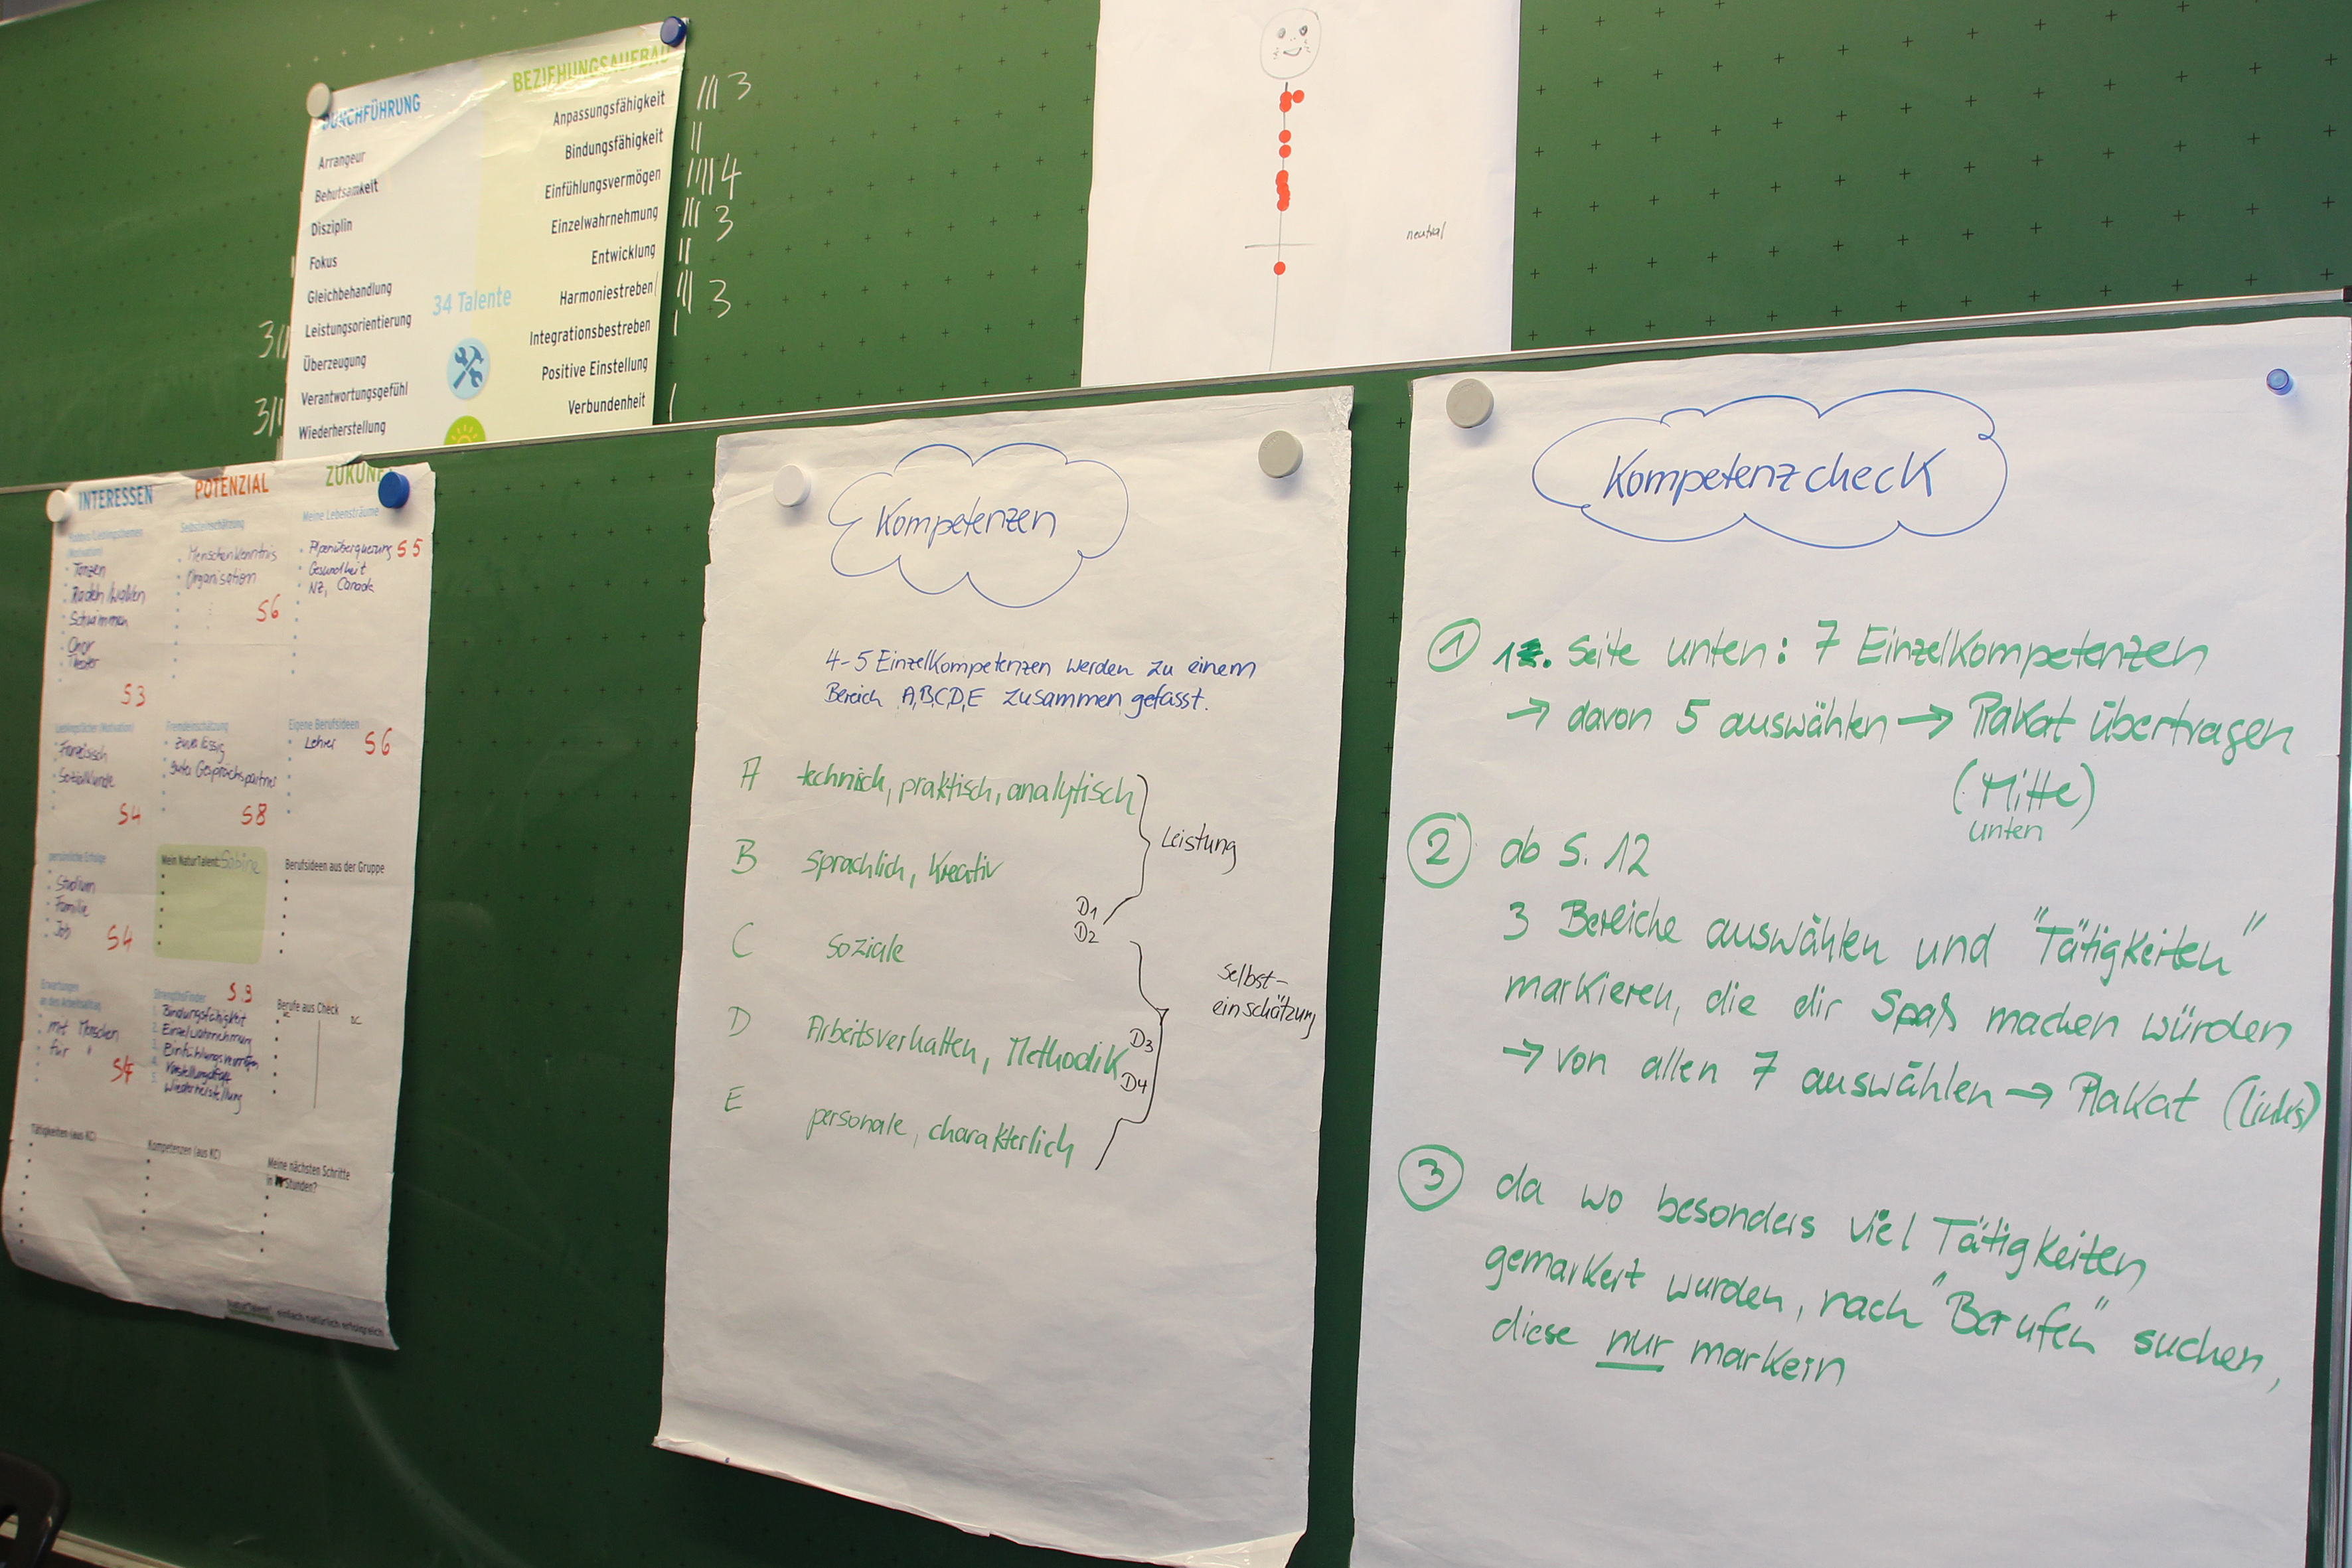 DURCHFÜHRUNG
Arrangeur
Behutsamkeit
Disziplin
Fokus
Gleichbehandlung
Leistungsorientierung
Überzeugung
Verantwortungsgefühl
Wiederherstellung
34 Talente
BEZIEHUNGSAUFBAU
Anpassungsfähigkeit
Bindungsfähigkeit
Einfühlungsvermögen
Einzelwahrnehmung
Entwicklung
Harmoniestreben
Integrationsbestreben
Positive Einstellung
Verbundenheit
3
4
3
3
3
3
neutral
INTERESSEN
POTENZIAL
ZUKUNF
(Motivation)
Tanzen
Schwimmen
Chor
Theater
S3
Selbsteinschätzung
Menschenkenntnis
Organisation
S6
Meine Lebensträume
Alpenüberquerung S5
Gesundheit
NZ, Canada
Lieblingsfächer (Motivation)
Französisch
Sozialkunde
S4
Fremdeinschätzung
zuverlässig
guter Gesprächspartner
S8
Eigene Berufsideen
Lehrer S6
persönliche Erfolge
Studium
Familie
Job
S4
Mein NaturTalent: Sabine
Berufsideen aus der Gruppe
Erwartungen
an den Arbeitsalltag
mit Menschen
für "
StrengthsFinder
Bindungsfähigkeit
Einzelwahrnehmung
Einfühlungsvermögen
Vorstellungskraft
Wiederherstellung
Berufe aus Check
Tätigkeiten (aus KC)
Kompetenzen (aus KC)
Meine nächsten Schritte
in Stunden?
einfach natürlich erfolgreich
Kompetenzen
4-5 Einzelkompetenzen werden zu einem
Bereich A,B,C,D,E zusammen gefasst.
A technisch, praktisch, analytisch
B sprachlich, kreativ
Leistung
D1
D2
C soziale
Selbst-
einschätzung
D Arbeitsverhalten, Methodik
D3
D4
E personale, charakterlich
Kompetenzcheck
① 1. Seite unten: 7 Einzelkompetenzen
→ davon 5 auswählen → Plakat übertragen
(Mitte)
unten
② ab S. 12
3 Bereiche auswählen und "Tätigkeiten"
markieren, die dir Spaß machen würden
→ von allen 7 auswählen → Plakat (links)
③ da wo besonders viel Tätigkeiten
gemarkert wurden, nach "Berufen" suchen,
diese nur markern